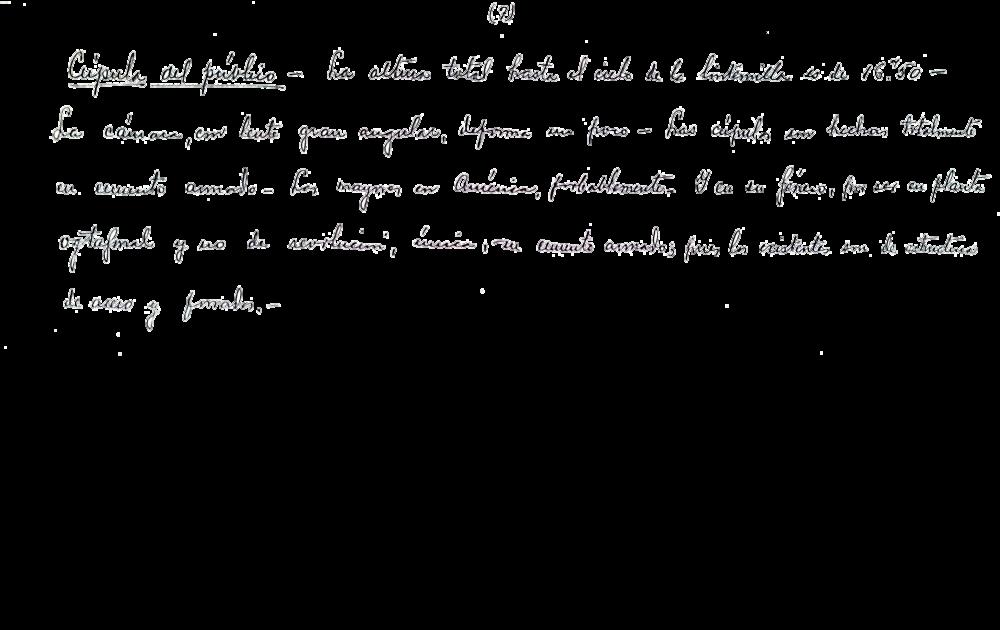 (2)
Cúpula del público - La altura total hasta el cielo de la lindernilla es de 16.m50 -
La cámara, con lente gran angular, deforma un poco - Las cúpulas son hechas totalmente
en cemento armado - Las mayores en América, probablemente. Y en su género, por ser en planta
octogonal y no de revolución, única, en cemento armado, pues las existentes son de estructura
de acero y forrados. -